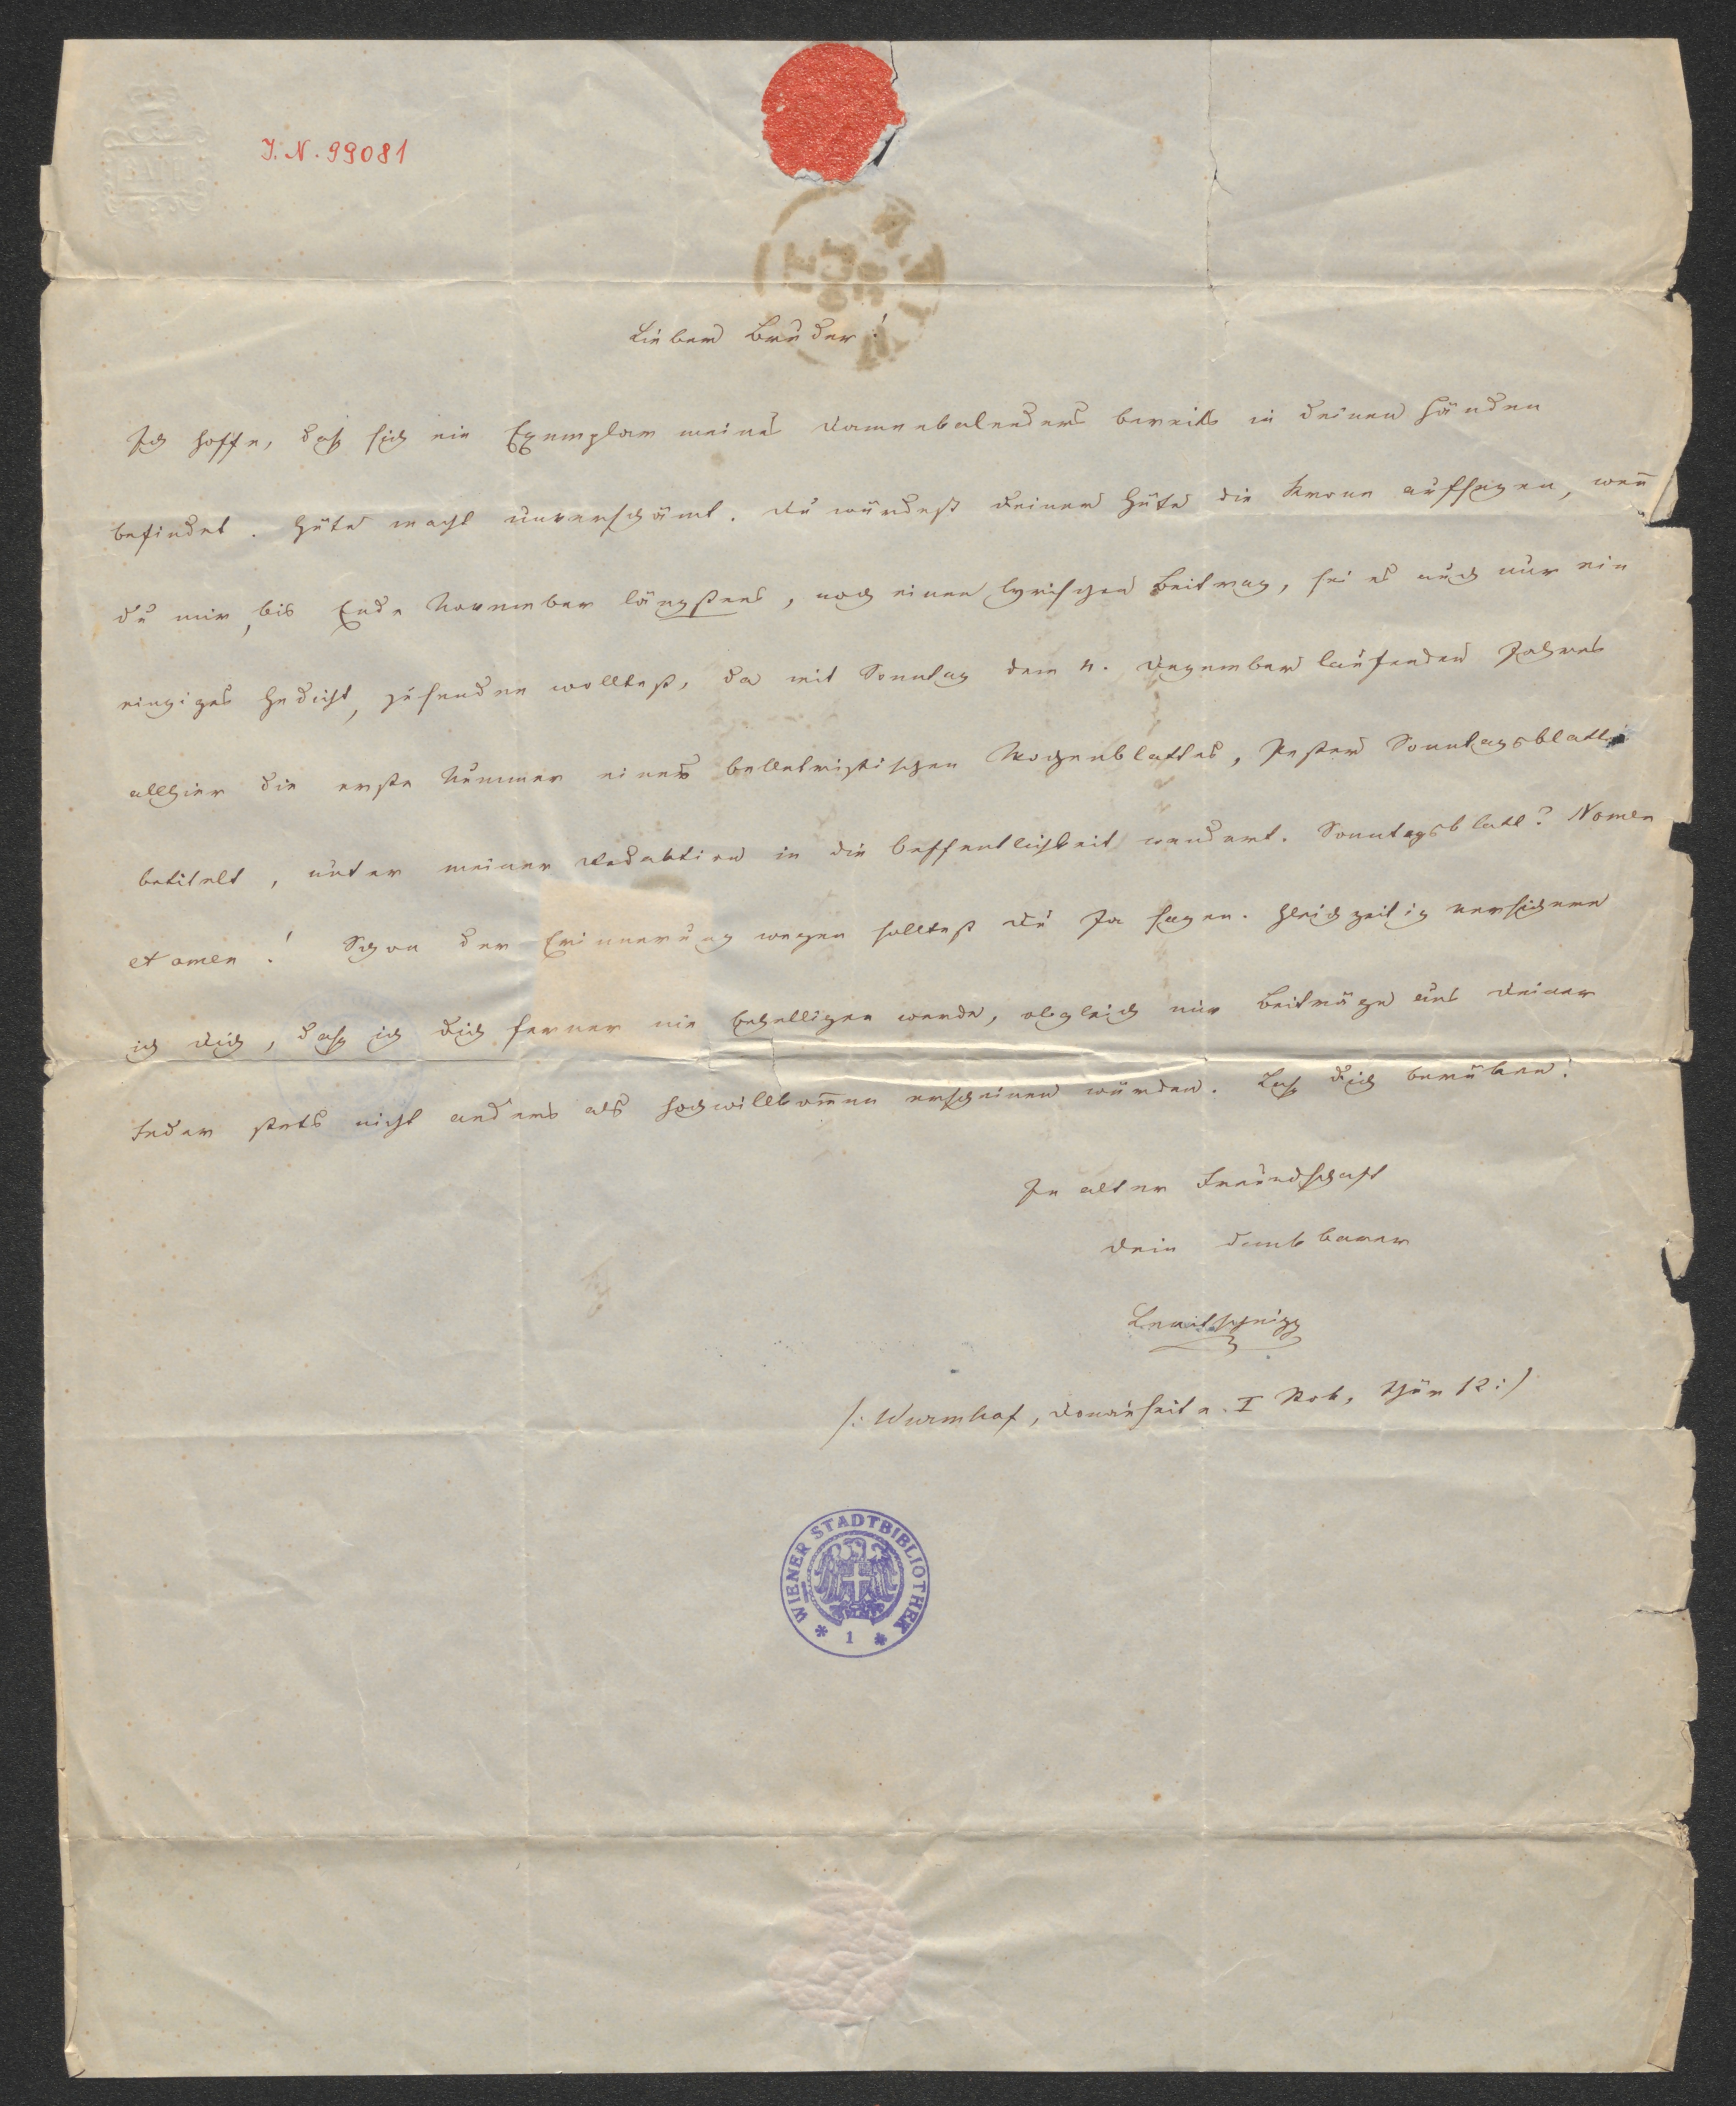 J. N. 99081
Lieber Bruder!
Ich hoffe, daß sich ein Exemplar meines Damenkalenders bereits in Deinen Händen
befindet. Güte macht unverschämt. Du würdest Deiner Güte die Krone aufsetzen, wen̅
Du mir, bis Ende November längstens, noch einen lyrischen Beitrag, sei es auch nur ein
einziges Gedicht, zusenden wolltest, da mit Sonntag dem 4. Dezember laufenden Jahres
allhier die erste Nummer eines belletristischen Wochenblattes, Pester Sonntagsblatt
betitelt, unter meiner Redaktion in die Oeffentlichkeit wandert. Sonntagsblatt? Nomen
et omen! Schon der Erinnerung wegen solltest Du Ja sagen. Gleichzeitig versichere
ich Dich, daß ich Dich ferner nie behelligen werde, obgleich mir Beiträge aus Deiner
Feder stets nicht anders als hochwillkom̅en erscheinen würden. Laß Dich
In alter Freundschaft
Dein dankbarer
Levitschnigg
/: Wurmhof, Donauseite. I Stok, Thür 12:/
WIENER STADTBIBLIOTHEK
* 1 *